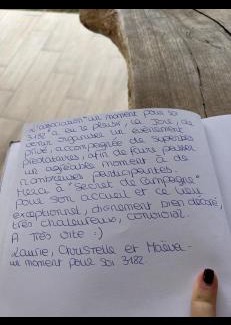 L'association "un moment pour soi
3182" a eu le plaisir, ce jour, de
venir organiser un événement
privé, accompagnée de superbes
prestataires, afin de faire passer
un agréable moment à de
nombreuses participantes.
Merci à "Secret de Campagne"
pour son accueil et ce lieu
exceptionnel, divinement bien décoré,
très chaleureux, convivial.
A très vite :)
Laurie, Christelle et Maeva -
un moment pour soi 3182